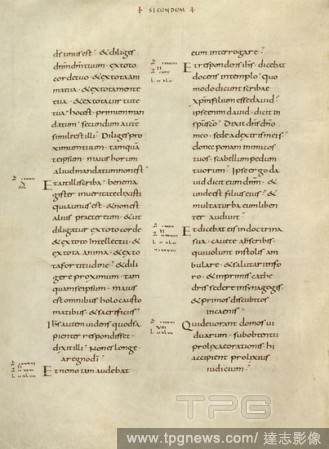 SECUNDUM
dsunus est · & diliges
dnm dm tuum · ex toto
corde tuo · & ex tota ani
ma tua · & ex tota mente
tua · & ex tota uirtute
tua · hoc est primum man
datum · secundum autem
simile est illi · Diliges pro
ximum tuum · tamqua
te ipsum · maius horum
aliud mandatum non est
Et ait illi scriba · bene ma
gister in ueritate dixisti
quia unus est · & non est
alius praeter eum · & ut
diligatur ex toto corde
& ex toto intellectu · &
ex tota anima · & ex to
ta fortitudine · & dili
gere proximum · tam
quam se ipsum · maius
est omnibus holocausto
matibus · & sacrificiis
Ihs autem uidens quod sa
pienter respondisset
dixit illi · Non es longe
a regno di
Et nemo iam audebat
eum interrogare
Et respondens ihs · dicebat
docens in templo · quo
modo dicunt scribae
xpm filium esse dauid
ipse enim dauid · dicit in
spu sco · Dixit dns dno
meo · sede a dextris meis
donec ponam inimicos
tuos · scabellum pedum
tuorum · Ipse ergo da
uid dicit eum dnm · &
unde est filius eius · &
multa turba eum liben
ter audiuit
Et dicebat eis in doctrina
sua · cauete a scribis
qui uolunt in stolis am
bulare · & salutari in fo
ro · & in primis cathe
dris sedere in synagogis
& primos discubitos
in caenis
Qui deuorant domos ui
duarum · sub obtentu
prolixae orationis · hi
accipient prolixius
iudicium
TPG
www.tpgnews.com/ 達志影像